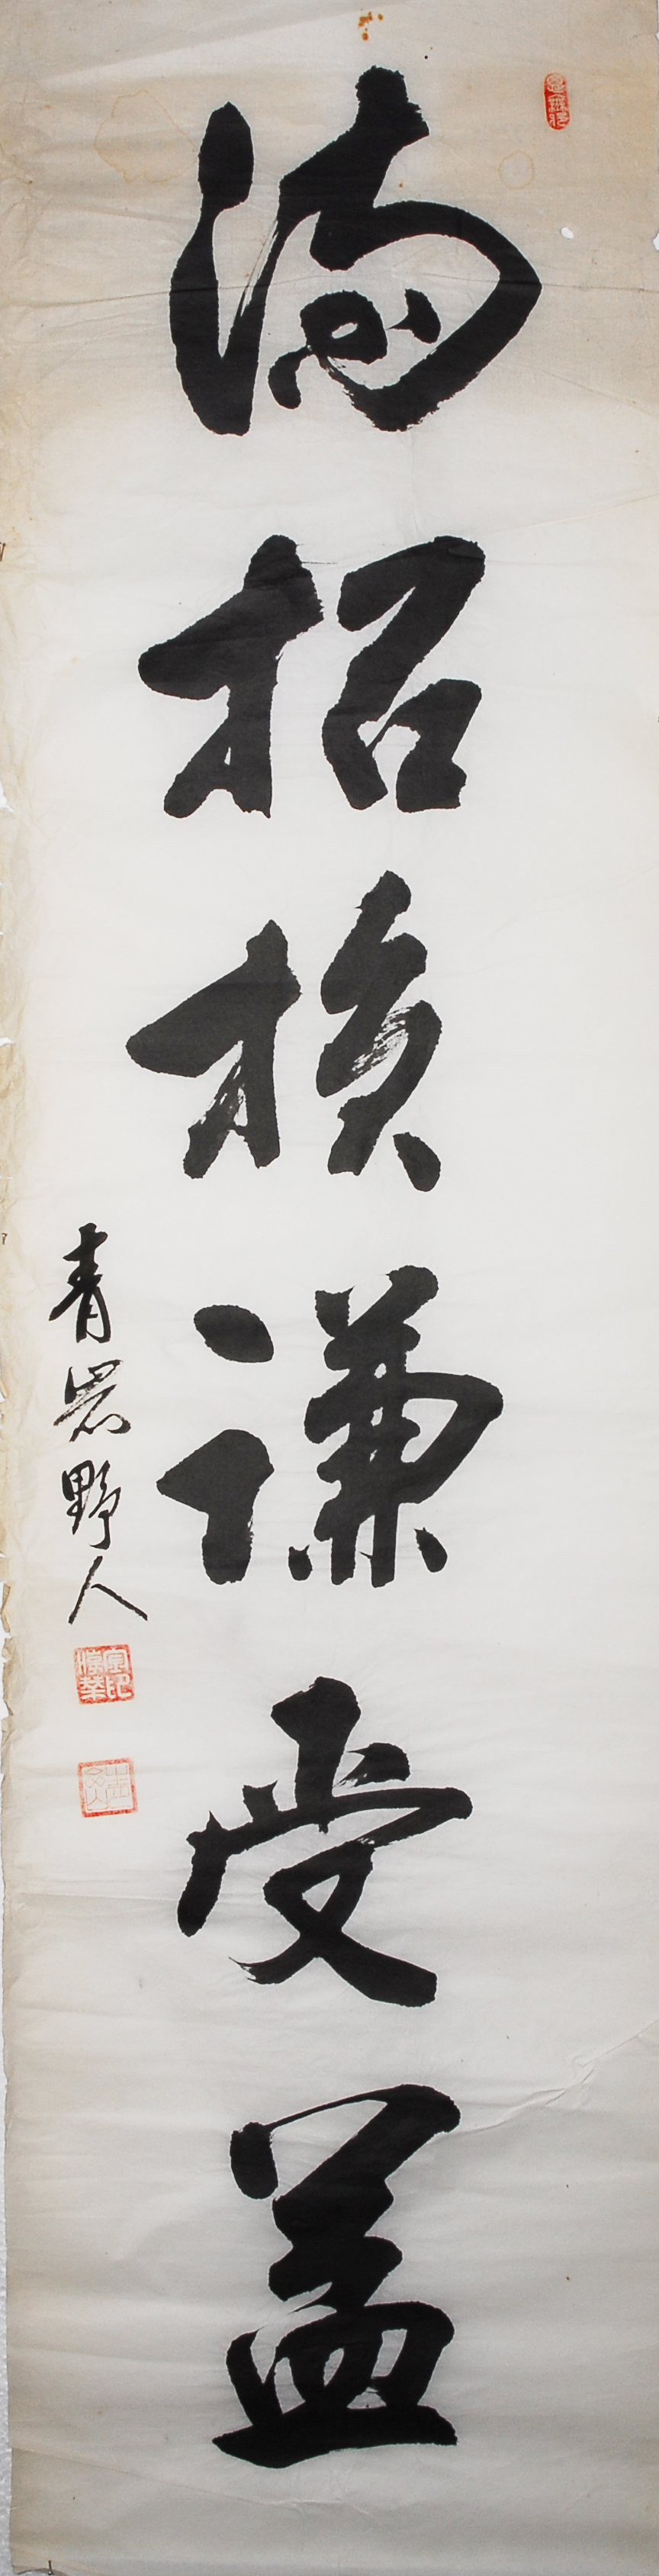 満招損謙受益
青岩野人